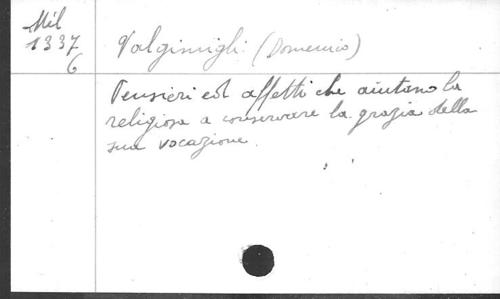 Mil
1337
6
Valgimigli (Domenico)
Pensieri ed affetti che aiutano la
religiosa a conservare la grazia della
sua vocazione.